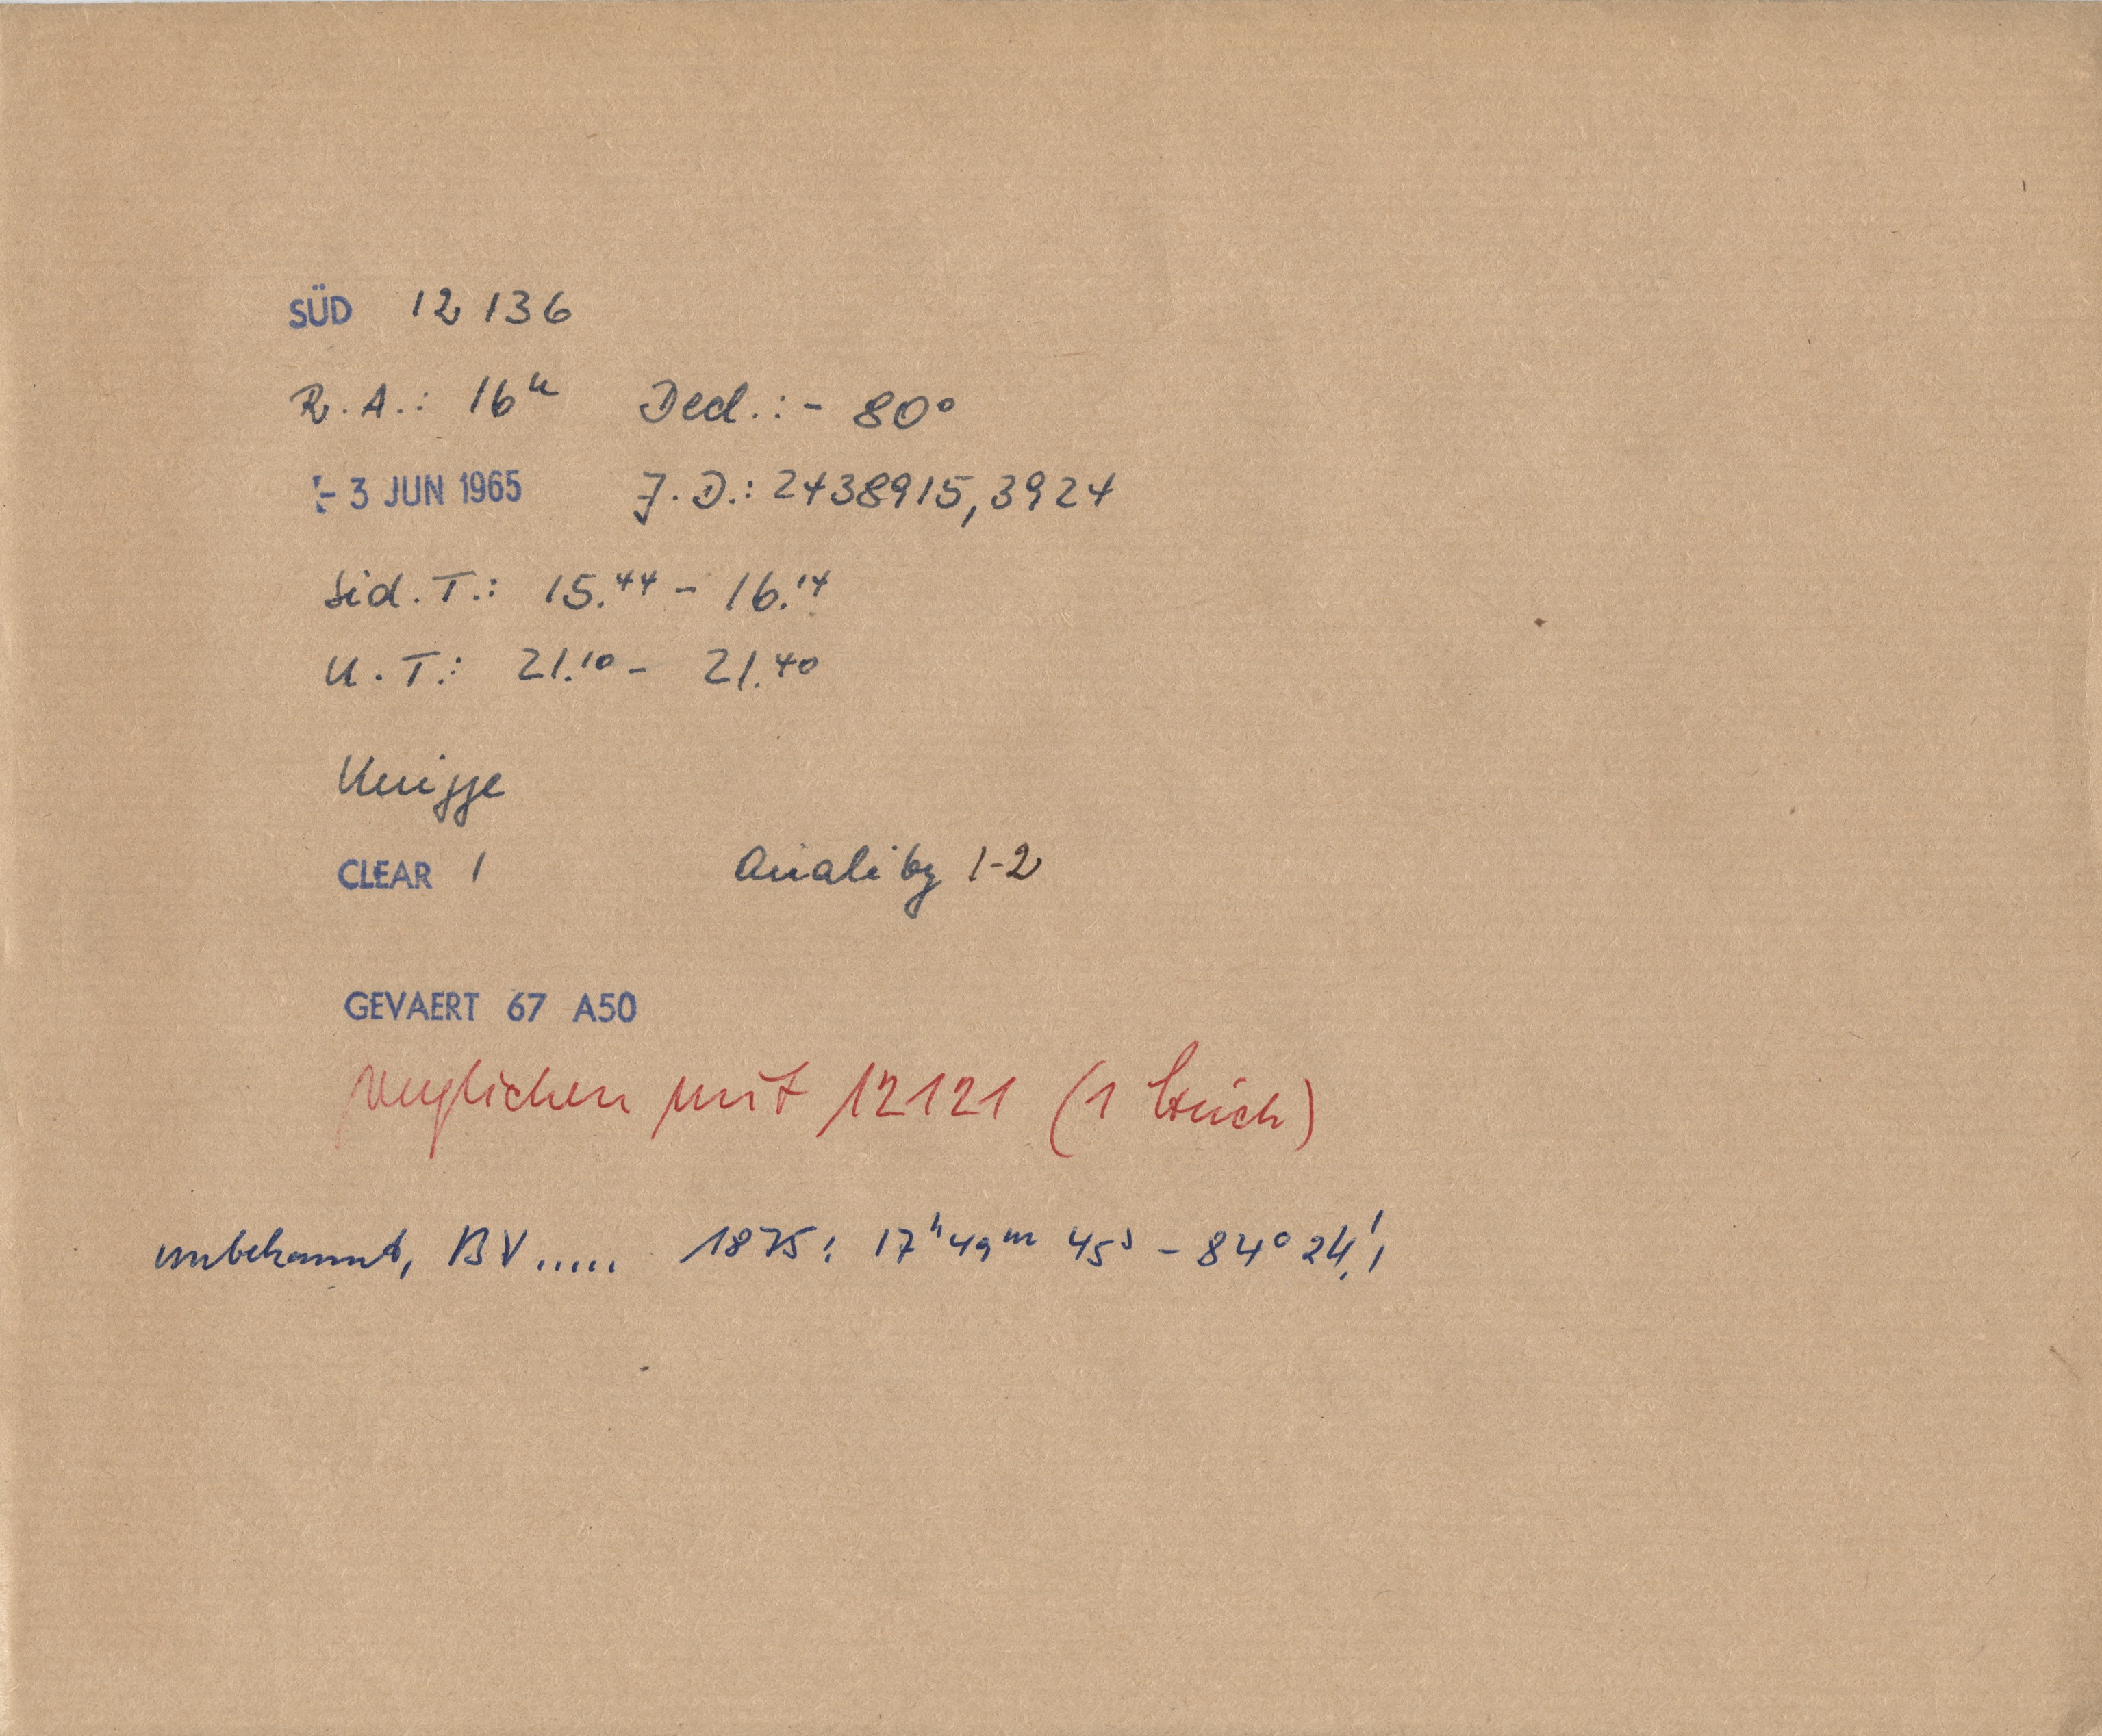 SÜD 12 136
R.A.: 16ʰ Decl.: - 80°
- 3 JUN 1965 J.D.: 2438915,3924
Sid.T.: 15.⁴⁴ - 16.¹⁴
U.T.: 21.¹⁰ - 21.⁴⁰
Knigge
CLEAR 1 Quality 1-2
GEVAERT 67 A50
verglichen mit 12121 (1 Strich)
unbekannt, BV..... 1875: 17ʰ 49ᵐ 45ˢ - 84° 24,'1